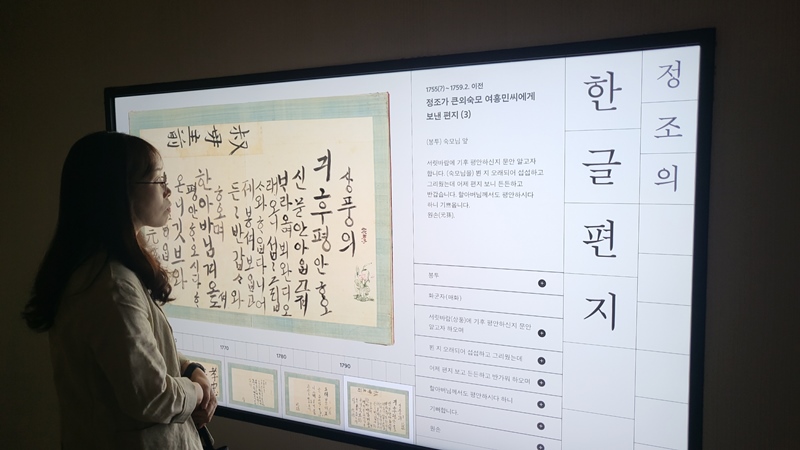 정조의
한글편지
1755(?) ~ 1759.2. 이전
정조가 큰외숙모 여흥민씨에게
보낸 편지 (3)
[봉투] 숙모님 앞
서릿바람에 기후 평안하신지 문안 알고자
합니다. (숙모님을) 뵌 지 오래되어 섭섭하고
그리웠는데 어제 편지 보니 든든하고
반갑습니다. 할아버님께서도 평안하시다
하니 기쁘옵니다.
원손(元孫)
봉투
화군자(매화)
서릿바람(상풍)에 기후 평안하신지 문안
알고자 하오며
뵌 지 오래되어 섭섭하고 그리웠는데
어제 편지 보고 든든하고 반가워 하오며
할아버님께서도 평안하시다 하니
기뻐합니다.
원손
叔母主前
상풍의
긔후평안ᄒᆞ오
신 문안아ᄋᆞᆸ고져
ᄇᆞ라오며 뵈완디오
래오니 섭섭
든든 반갑ᄉᆞ와
ᄒᆞ오며
한아바님겨오셔도
평안ᄒᆞ오시다 ᄒᆞ
온니 깃브와
1770
1780
1790